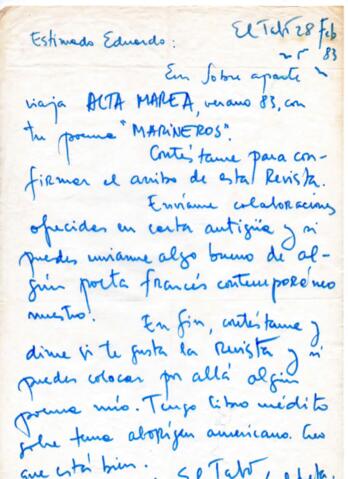 El Tabo 28 Feb
83
Estimado Eduardo:
En sobre aparte
viaja ALTA MAREA, verano 83, con
tu poema "MARINEROS".
Contéstame para con-
firmar el arribo de esta Revista.
Envíame colaboraciones
ofrecidas en carta antigüa y si
puedes enviarme algo bueno de al-
gún poeta francés contemporáneo
nuestro.
En fin, contéstame y
dime si te gusta la Revista y si
puedes colocar por allá algún
poema mío. Tengo libro inédito
sobre tema aborígen americano. Creo
que está bien.
El Tabo,